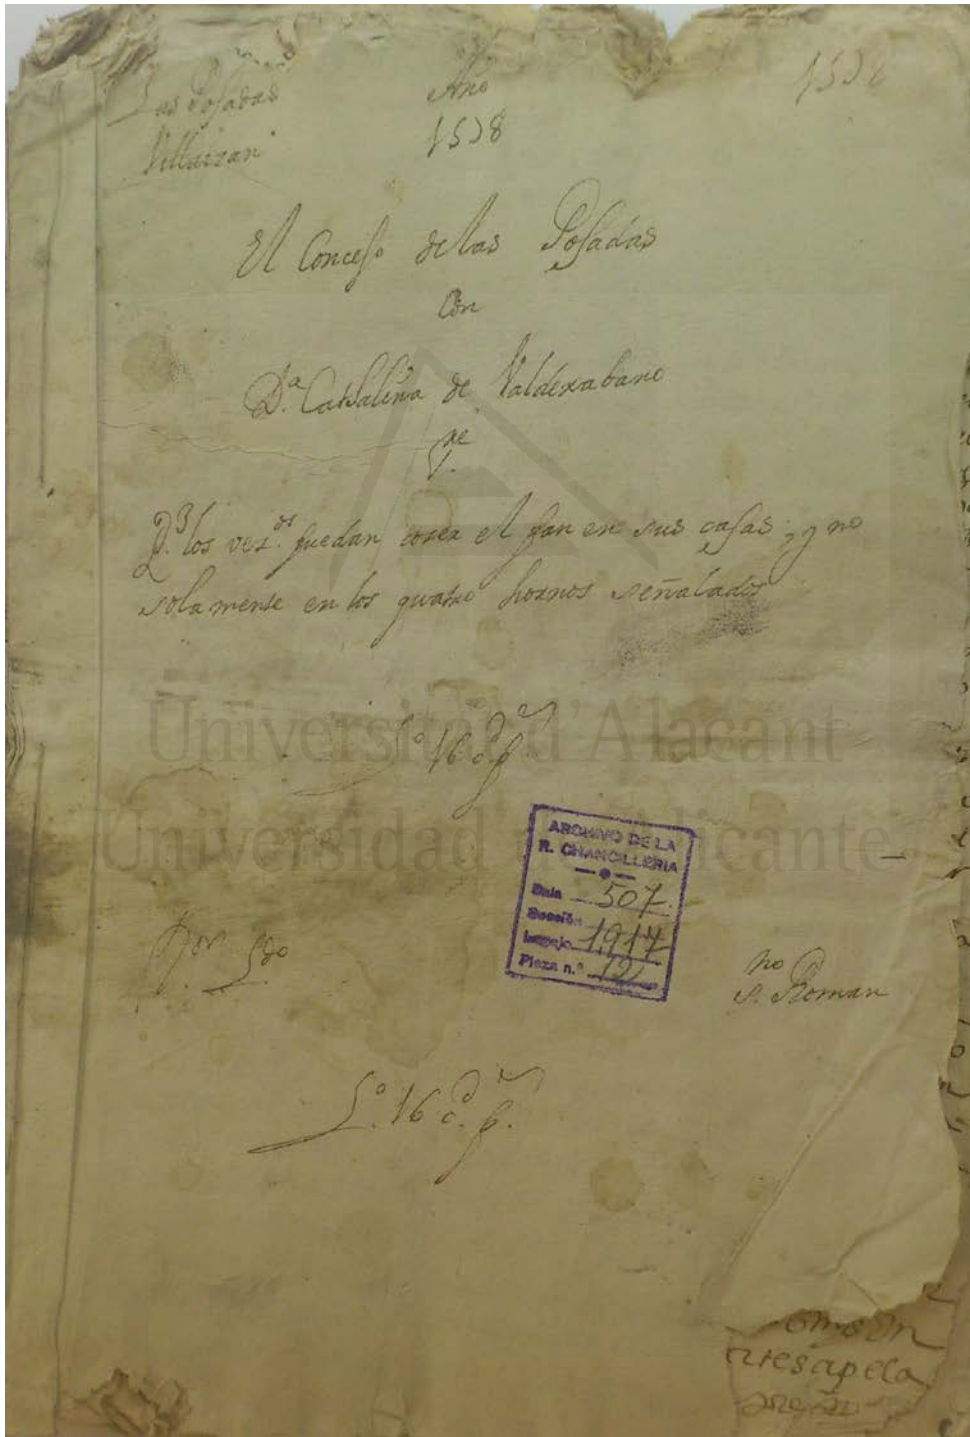 Las Posadas Año 1538
Villaizan 1538
El Concejo de las Posadas
Con
D.ª Cathalina de Valderabano
re
S.
Q.e los vez.os puedan cozer el pan en sus casas, y no
solamente en los quatro hornos señalados
L.o 16 d. f.
Universitat d'Alacant
Universidad de Alicante
ARCHIVO DE LA
R. CHANCILLERIA
Sala 507
Sección
Legajo 1914
Pieza n.º 12
no
S. Roman
L.o 16 d. f.